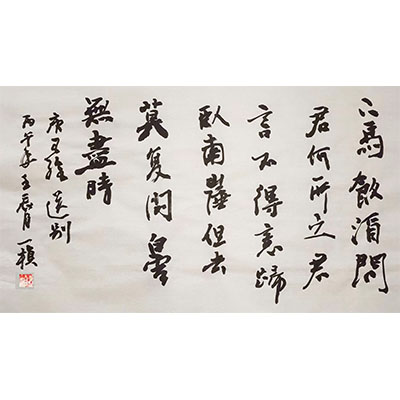 下馬飲酒問
君何所之君
言不得意歸
臥南山陲但去
莫复問白雲
無盡時
唐王維送別
丙午年 辰月 一